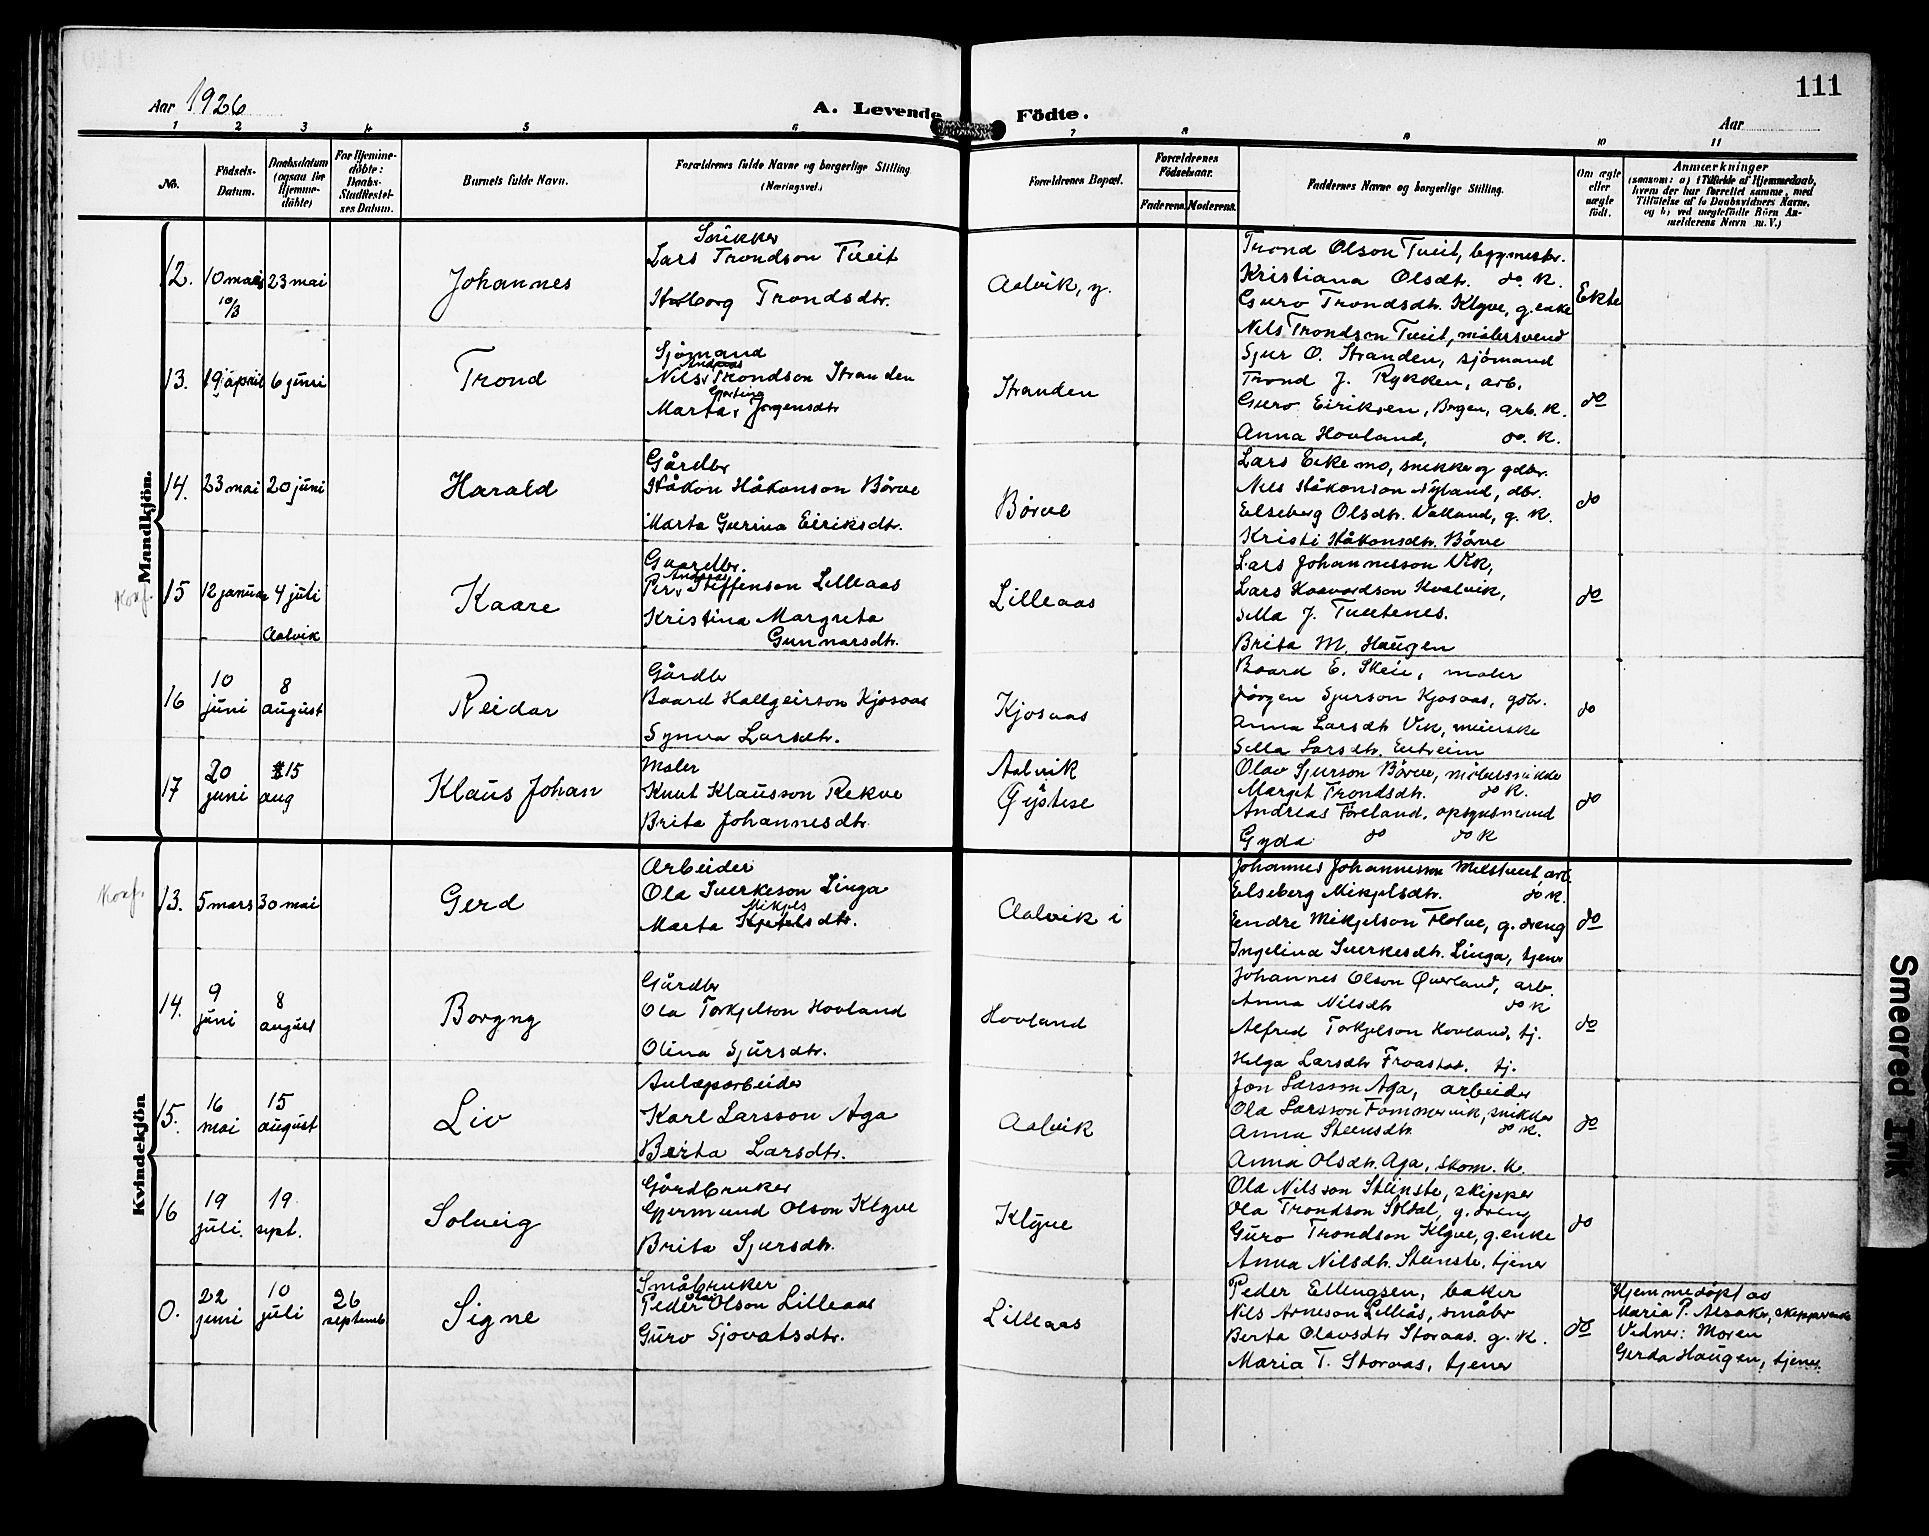 111
Aar 1926
A. Levende Födte.
Aar
1 2 3 4 5 6 7 8 9 10 11
No.
Födsels-Datum.
Daabsdatum (ogsaa for Hjemme-döbte)
For Hjemme-döbte: Daabs-Stadfæstel-ses Datum.
Barnets fulde Navn.
Forældrenes fulde Navne og borgerlige Stilling (Næringsvei.)
Forældrenes Bopæl.
Forældrenes Födselsaar.
Faderens. Moderens.
Faddernes Navne og borgerlige Stilling.
Om ægte eller uægte födt.
Anmærkninger
(saasom: a) i Tilfælde af Hjemmedaab,
hvem der har forrettet samme, med
Tilföielse af to Daabsvidners Navne,
og b) ved uægtefödte Börn An-
melderens Navn m. V.)
Mandkjön.
12. 10 mars 10/3 23 mai
Johannes
Snikker
Lars Trondson Tveit
Trondsdtr.
Aalvik, y.
Trond Olson Tveit, byggmestr.
Kristiana Olsdt. do k.
Guro Trondsdtr. Klyve, g.enke
Nils Trondson Tveit, målersvend
Ekte
13. 19 april 6 juni
Trond
Sjömand
Andreas
Nils Trondson Stranden
Marta Jørgensdtr
Stranden
Sjur O. Stranden, sjömand
Trond J. Rykken, arb.
Guro Eiriksen, Bergen, arb. k.
Anna Hovland, do. k.
do
14. 23 mai 20 juni
Harald
Gårdbr
Håkon Håkonson Børve
Marta Gurina Eiriksdtr.
Børve
Lars Eikemo, snikker og gdbr.
Nils Håkonson Nyland, dbr.
Elseberg Olsdtr. Valland, g. k.
Kristi Håkonsdtr. Börve
do
Konf.
15 12 januar 4 juli
Aalvik
Kaare
Gaardbr.
Andreas
Pr. Steffenson Lilleaas
Kristina Margreta
Gunnarsdtr.
Lilleaas
Lars Johannesson Vik,
Lars Haavardson Kvalvik,
Silla J. Tveitenes.
Brita M. Haugen
do
16 10 juni 8 august
Reidar
Gårdbr
Baard Hallgeirson Kjosaas
Synva Larsdtr.
Kjosaas
Baard E. Skeie, maler
Jörgen Sjurson Kjosaas, gdbr.
Anna Larsdtr Vik, meierske
Silla Larsdtr. Eitreim
do
17 20 juni 15 aug
Klaus Johan
Maler
Knut Klausson Rekve
Brita Johannesdtr.
Aalvik
Øystese
Olav Sjurson Börve, möbelsnikker
Margit Trondsdtr. do k.
Andreas Föreland, opsynsmand
Gyda do do k
do
Kvindekjön
Konf.
13. 5 mars 30 mai
Gerd
Arbeider
Ola Sverkeson Linga
Mikjels
Marta Kjetelsdtr.
Aalvik i
Johannes Johannesson Melstveit arb.
Elseberg Mikjelsdtr. do k.
Eendre Mikjelson Flotve, g. dreng
Ingelina Sverkesdtr. Linga, tjener
do
14. 9 juni 8 august
Borgny
Gårdbr
Ola Torkjelson Hovland
Olina Sjursdtr.
Hovland
Johannes Olson Øverland, arb.
Anna Nilsdtr do k
Alfred Torkjelson Hovland, tj.
Helga Larsdtr tj.
do
15. 16 mai 15 august
Liv
Anlæparbeider
Karl Larsson Aga
Berta Larsdtr.
Aalvik
Jon Larsson Aga, arbeider
Ola Larsson snikker
Anna Steinsdtr. do k.
Anna Olsdtr. Aga, skom. k.
do
16 19 juli. 19 sept.
Solveig
Gårdbruker
Gjermund Olson Klyve
Brita Sjursdtr.
Klyve
Ola Nilsson Steinstø, skipper
Ola Trondson Soldal, g. dreng
Guro Trondson Klyve, g. enke
Anna Nilsdtr. Steinstø, tjener
do
0. 22 juni 10 juli 26 septemb
Signe
Småbruker
Peder Olson Lilleaas
Guro Sjovatsdtr.
Lilleaas
Peder Ellingsen, baker
Nils Arneson Lilleås, småbr
Berta Olavsdtr Storaas. g. k.
Maria T. Storaas, tjener
do
Hjemmedöpt av
Maria P. Alsaker,
Vidner: Moren
Gerda Haugen, tjener.
Smeared Ink